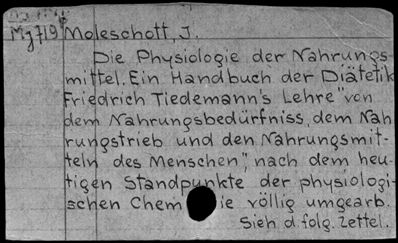 Mg 719 Moleschott, J.
Die Physiologie der Nahrungs-
mittel. Ein Handbuch der Diätetik
Friedrich Tiedemann's Lehre "von
dem Nahrungsbedürfniss, dem Nah
rungstrieb und den Nahrungsmit-
teln des Menschen", nach dem heu-
tigen Standpunkte der physiologi-
schen Chem ie völlig umgearb.
Sieh d. folg. Zettel.